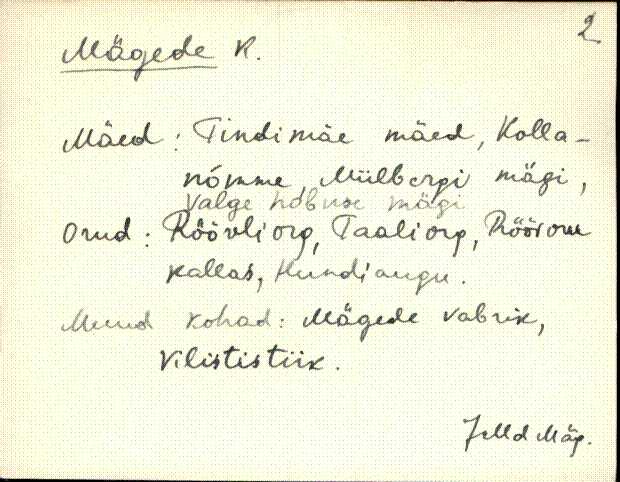 2
Mägede K.
Mäed: Tindimäe mäed, Kolla-
nõmme, Mülbergi mägi,
valge hobuse mägi
Orud: Röövliorg, Taaliorg,
kallas, Hundiaugu.
Muud kohad: Mägede vabrik,
Vilististiik.
Mäg.